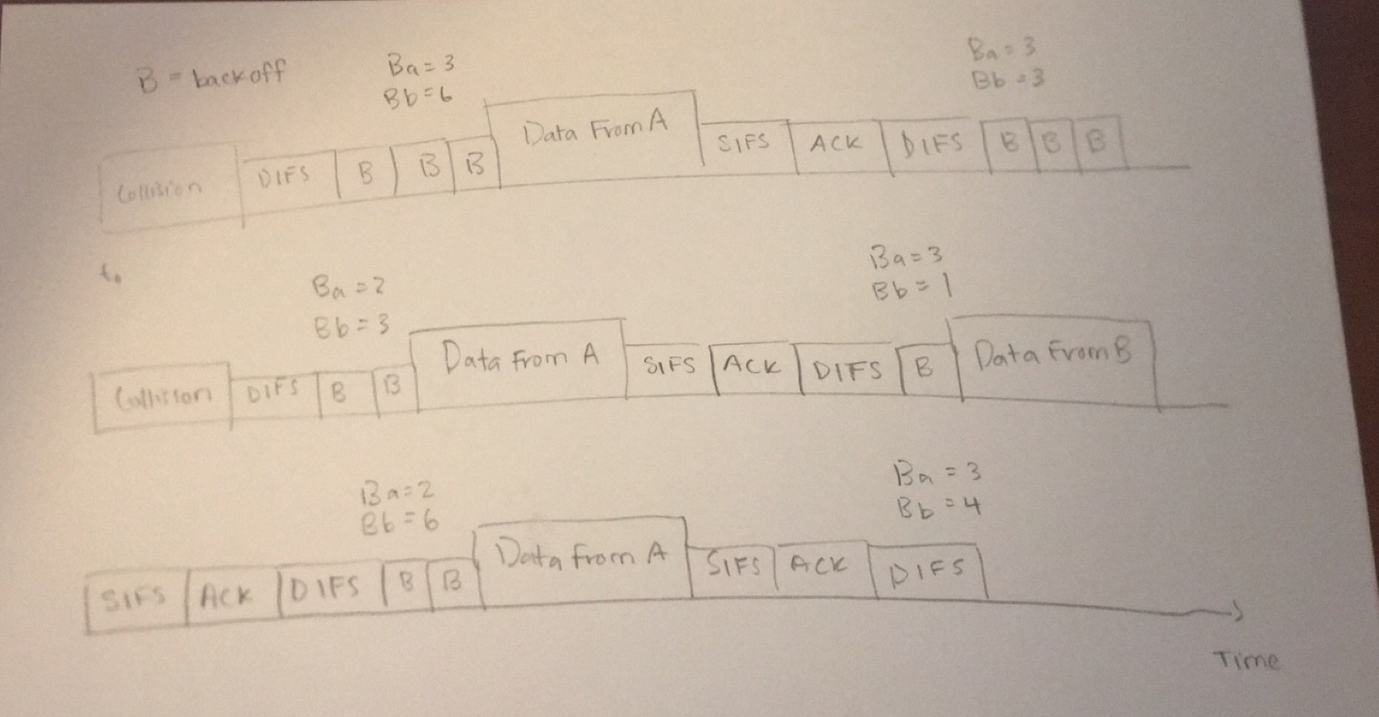 B = backoff
Ba = 3
Bb = 6
Ba = 3
Bb = 3
Collision DIFS B B B Data From A SIFS ACK DIFS B B B
t₀
Ba = 2
Bb = 3
Ba = 3
Bb = 1
Collision DIFS B B Data From A SIFS ACK DIFS B Data From B
Ba = 2
Bb = 6
Ba = 3
Bb = 4
SIFS ACK DIFS B B Data from A SIFS ACK DIFS
Time